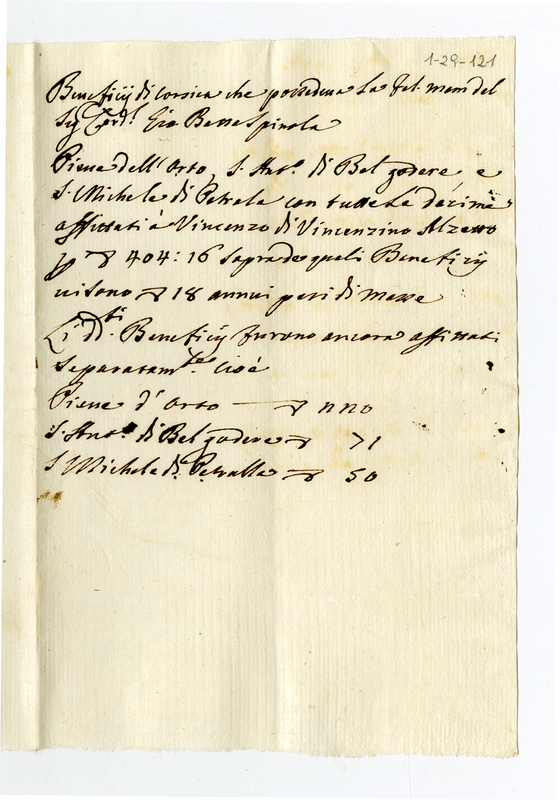 1-29-121
Beneficij di Corsica che possedeua la fel. mem del
Sig.r Card.l Gio Batta Spinola
Pieue dell'Orto, S. Ant.o di Bel godere, e
S. Michele di Petrala con tutte le decime
affittati à Vincenzo di Vincenzino
404: 16 Sopra de quali Beneficij
ui sono 18 annui pesi di messe
Li d.ti Beneficij furono ancora affittati
Separatam.te Cioè
Pieue d'Orto
S. Ant.o di Bel godere 71
S Michele di Petralla 50